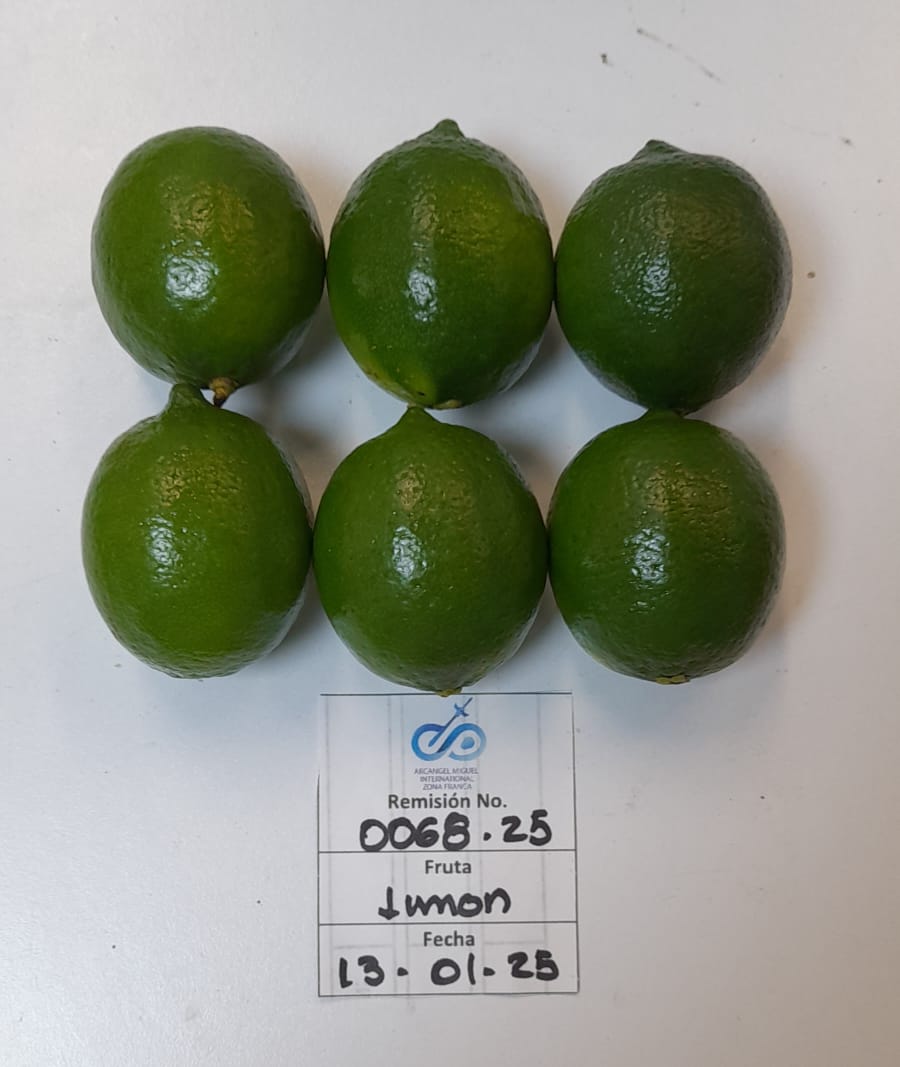 ARCANGEL MIGUEL
INTERNATIONAL
ZONA FRANCA
Remisión No.
0068.25
Fruta
Limon
Fecha
13-01-25